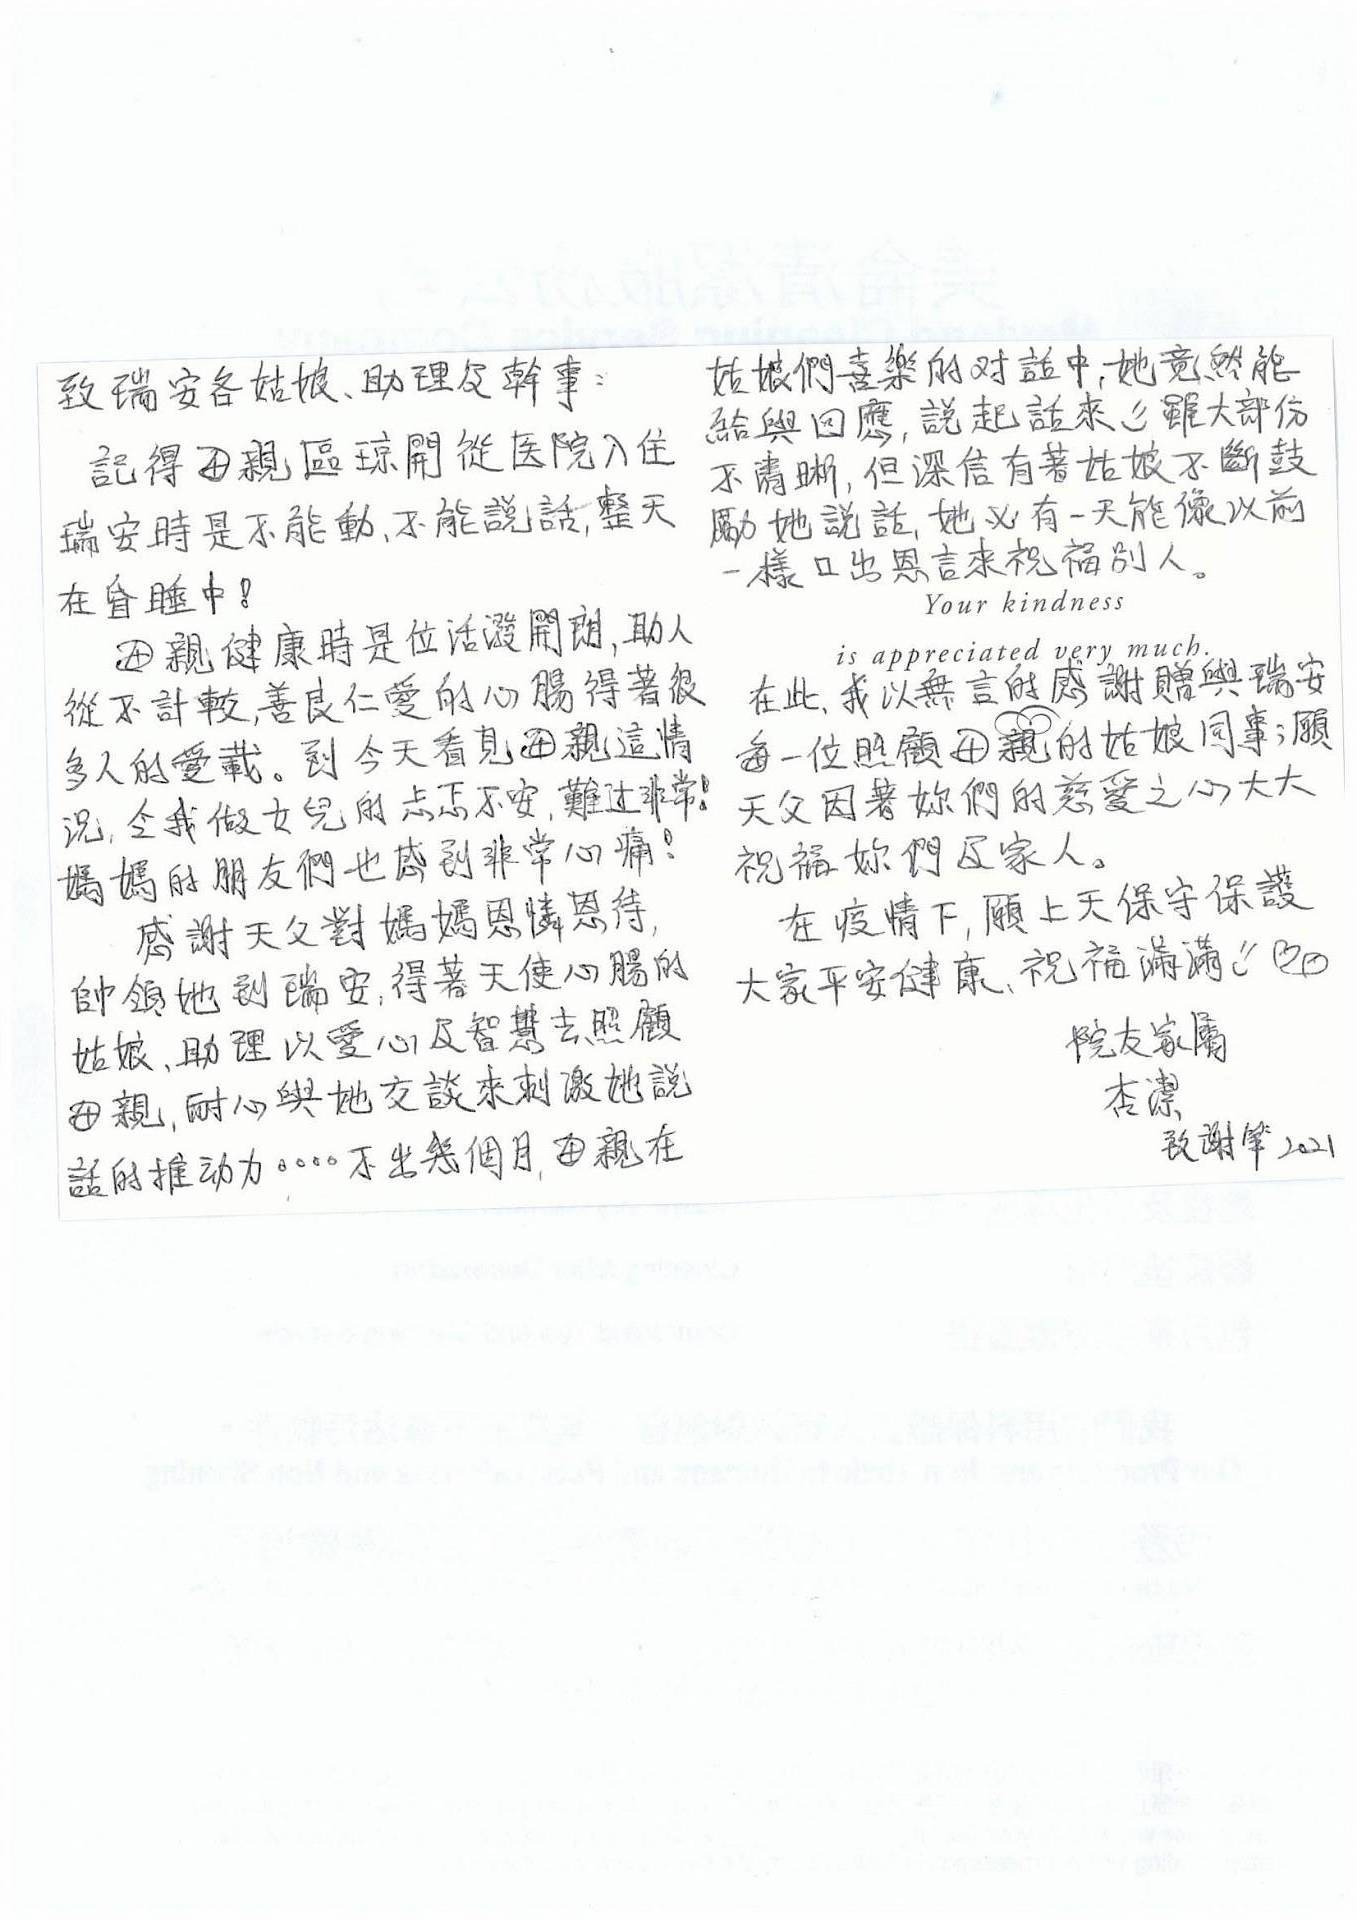 致瑞安各姑娘、助理及幹事:
記得母親區琼開從医院入住
瑞安時是不能動,不能説話,整天
在昏睡中!
母親健康時是位活潑開朗,助人
從不計較,善良仁愛的心腸得著很
多人的愛載。到今天看見母親這情
況,令我做女兒的忐忑不安,難过非常!
媽媽的朋友們也感到非常心痛!
感謝天父對媽媽恩憐恩待,
帥領她到瑞安,得著天使心腸的
姑娘、助理以愛心及智慧去照顧
母親,耐心與她交談來刺激她説
話的推动力。。。。不出幾個月,母親在
姑娘們喜樂的对話中,她竟然能
給與回應,説起話來!! 雖大部份
不清晰,但深信有著姑娘不斷鼓
勵她説話,她必有一天能像以前
一樣口出恩言來祝福別人。
Your kindness
is appreciated very much.
在此,我以無言的感謝贈與瑞安
每一位照顧母親的姑娘同事;願
天父因著妳們的慈愛之心大大
祝福妳們及家人。
在疫情下,願上天保守保護
大家平安健康、祝福滿滿!!
院友家屬
杏潔
致謝筆 2021
美倫清潔服务公司
Cleaning Service Company